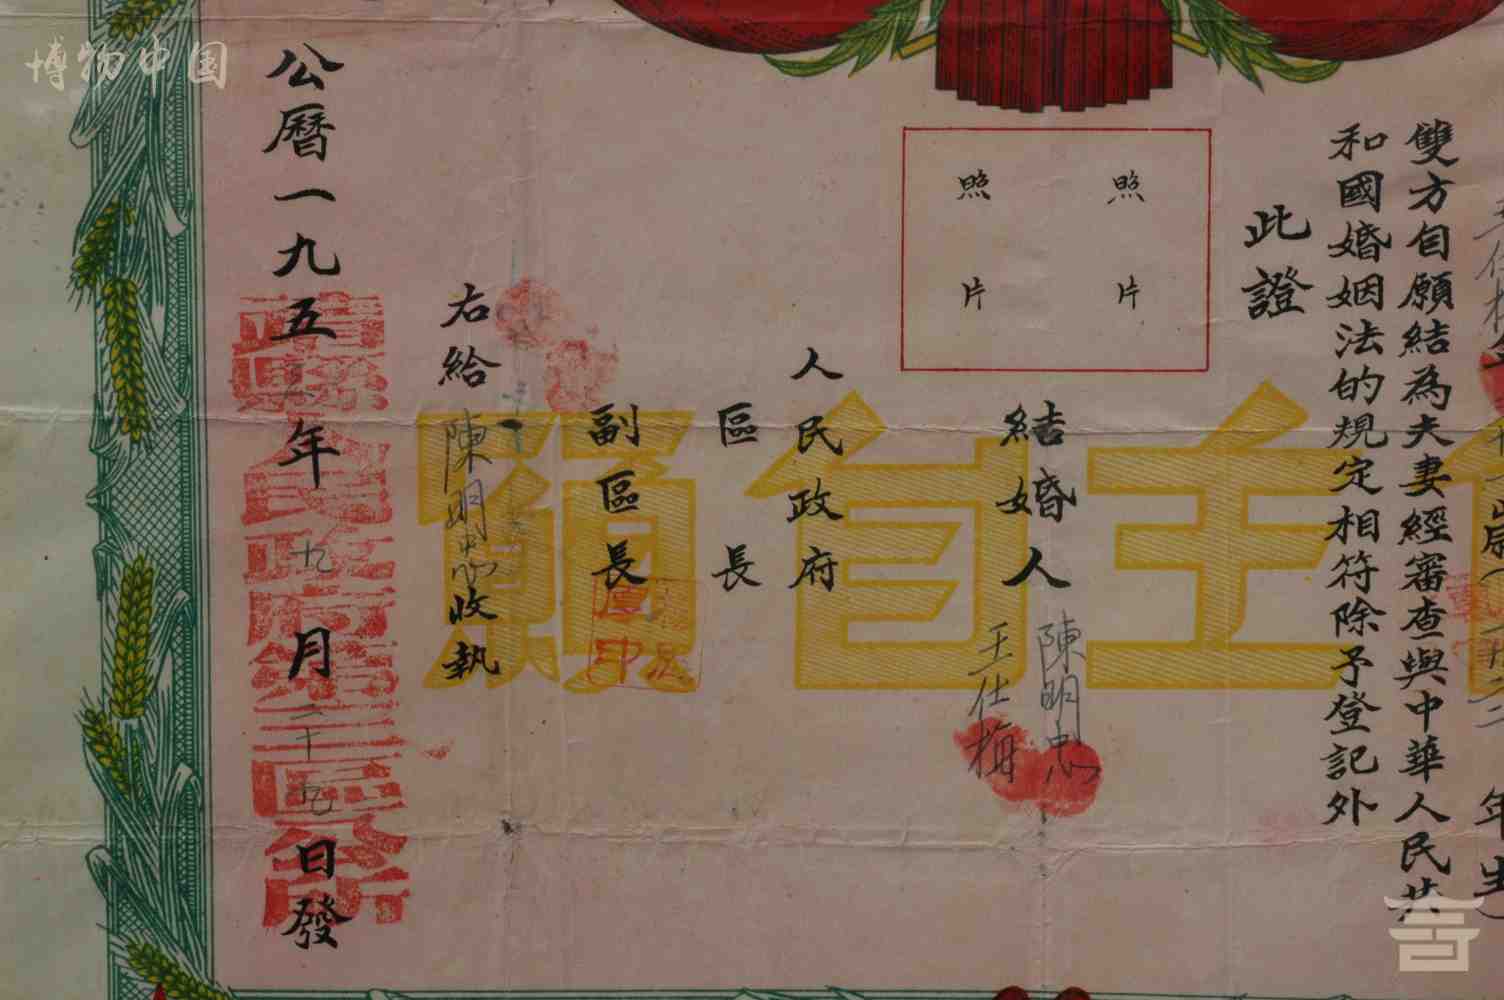 博物中国
雙方自願結為夫妻經審查與中華人民共
和國婚姻法的規定相符除予登記外
此證
照片
照片
主自願
結婚人
陳明忠
王仕梅
人民政府
區長
副區長
右給陳明忠收執
公曆一九五 年九月二十九日發
縣人民政府第三區公所
年生)